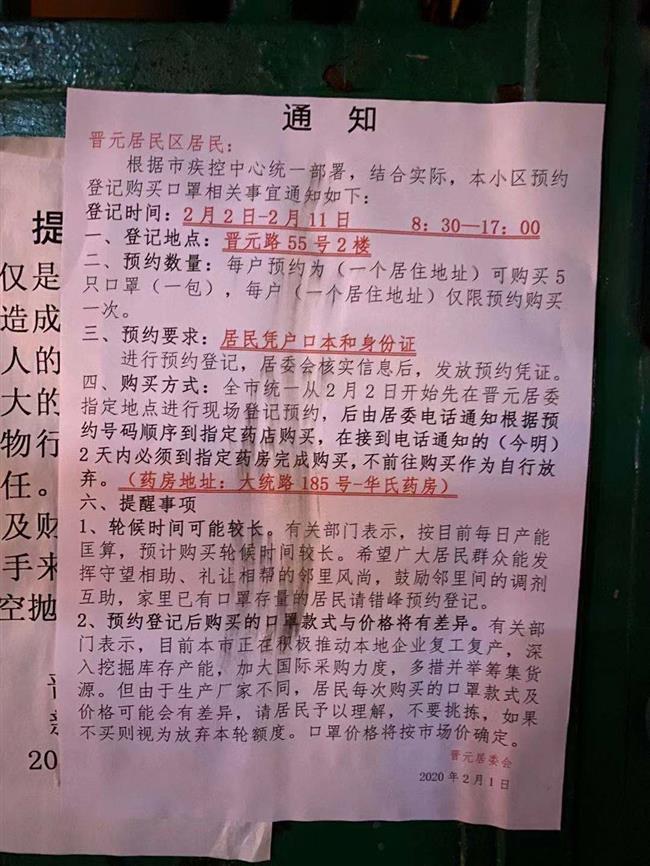 通 知
晋元居民区居民：
根据市疾控中心统一部署，结合实际，本小区预约
登记购买口罩相关事宜通知如下：
登记时间：2月2日-2月11日 8：30—17：00
一、登记地点：晋元路55号2楼
二、预约数量：每户预约为（一个居住地址）可购买5
只口罩（一包），每户（一个居住地址）仅限预约购买
一次。
三、预约要求：居民凭户口本和身份证
进行预约登记，居委会核实信息后，发放预约凭证。
四、购买方式：全市统一从2月2日开始先在晋元居委
指定地点进行现场登记预约，后由居委电话通知根据预
约号码顺序到指定药店购买，在接到电话通知的（今明）
2天内必须到指定药房完成购买，不前往购买作为自行放
弃。（药房地址：大统路185号-华氏药房）
六、提醒事项
1、轮候时间可能较长。有关部门表示，按目前每日产能
匡算，预计购买轮候时间较长。希望广大居民群众能发
挥守望相助、礼让相帮的邻里风尚，鼓励邻里间的调剂
互助，家里已有口罩存量的居民请错峰预约登记。
2、预约登记后购买的口罩款式与价格将有差异。有关部
门表示，目前本市正在积极推动本地企业复工复产，深
入挖掘库存产能，加大国际采购力度，多措并举筹集货
源。但由于生产厂家不同，居民每次购买的口罩款式及
价格可能会有差异，请居民予以理解，不要挑拣，如果
不买则视为放弃本轮额度。口罩价格将按市场价确定。
晋元居委会
2020年2月1日
提
仅是
造成
人的
大的
物行
任。
及财
手来
空抛
20